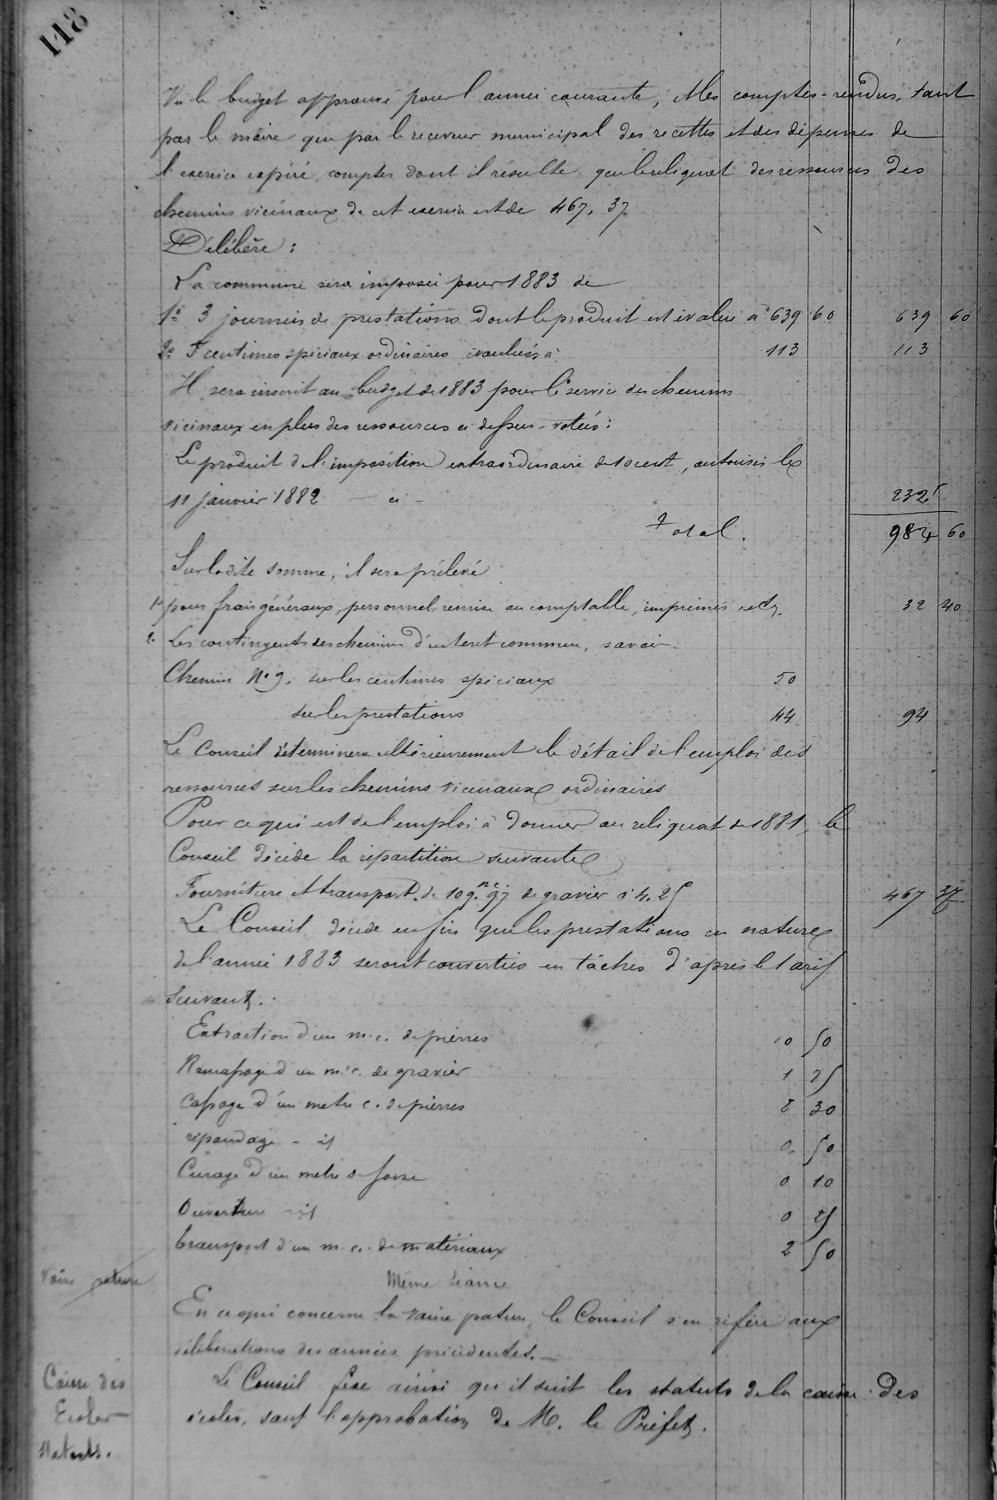 118
Vu le budget approuvé pour l'année courante, et les comptes-rendus, tant
par le maire que par le receveur municipal des recettes et des dépenses de
l'exercice expiré, comptes dont il résulte que le reliquat des ressources des
chemins vicinaux de cet exercice est de 467,37
Délibère :
La commune sera imposée pour 1883 de
1º 3 journées de prestations dont le produit est évalué à 639 60 639 60
2º 5 centimes spéciaux ordinaires évalués à 113 113
Il sera inscrit au budget de 1883 pour le service des chemins
vicinaux en plus des ressources ci dessus-votées :
Le produit de l'imposition extraordinaire de 10 cent, autorisée le
11 janvier 1882 — ci - 232
Total. 984 60
Sur ladite somme, il sera prélevé
1º pour frais généraux, personnel remise au comptable, imprimés etc. 32 40
2º Les contingents des chemins d'interet commun, savoir.
Chemin Nº 9. sur les centimes spéciaux 50
sur les prestations 44 94
Le Conseil déterminera ultérieurement le détail de l'emploi des
ressources sur les chemins vicinaux ordinaires
Pour ce qui est de l'emploi à donner au reliquat de 1881, le
Conseil décide la répartition suivante
Fourniture et transport de 109.mc.97 de gravier à 4.25 467 37
Le Conseil décide enfin que les prestations en nature
de l'année 1883 seront converties en tâches d'après le tarif
suivant.
Extraction d'un m.c. de pierres 0 50
Ramassage d'un m.c. de gravier 1 25
Cassage d'un metre c. de pierres 2 30
répandage - id 0. 50
Curage d'un metre de fosse 0 10
Ouverture - id 0 25
transport d'un m.c. de matériaux 2 50
Vaine pature
Même séance
En ce qui concerne la vaine pature, le Conseil s'en réfère aux
délibérations des années précédentes. —
Caisse des
Ecoles
Statuts.
Le Conseil fixe ainsi qu'il suit les statuts de la caisse des
écoles, sauf l'approbation de M. le Préfet.